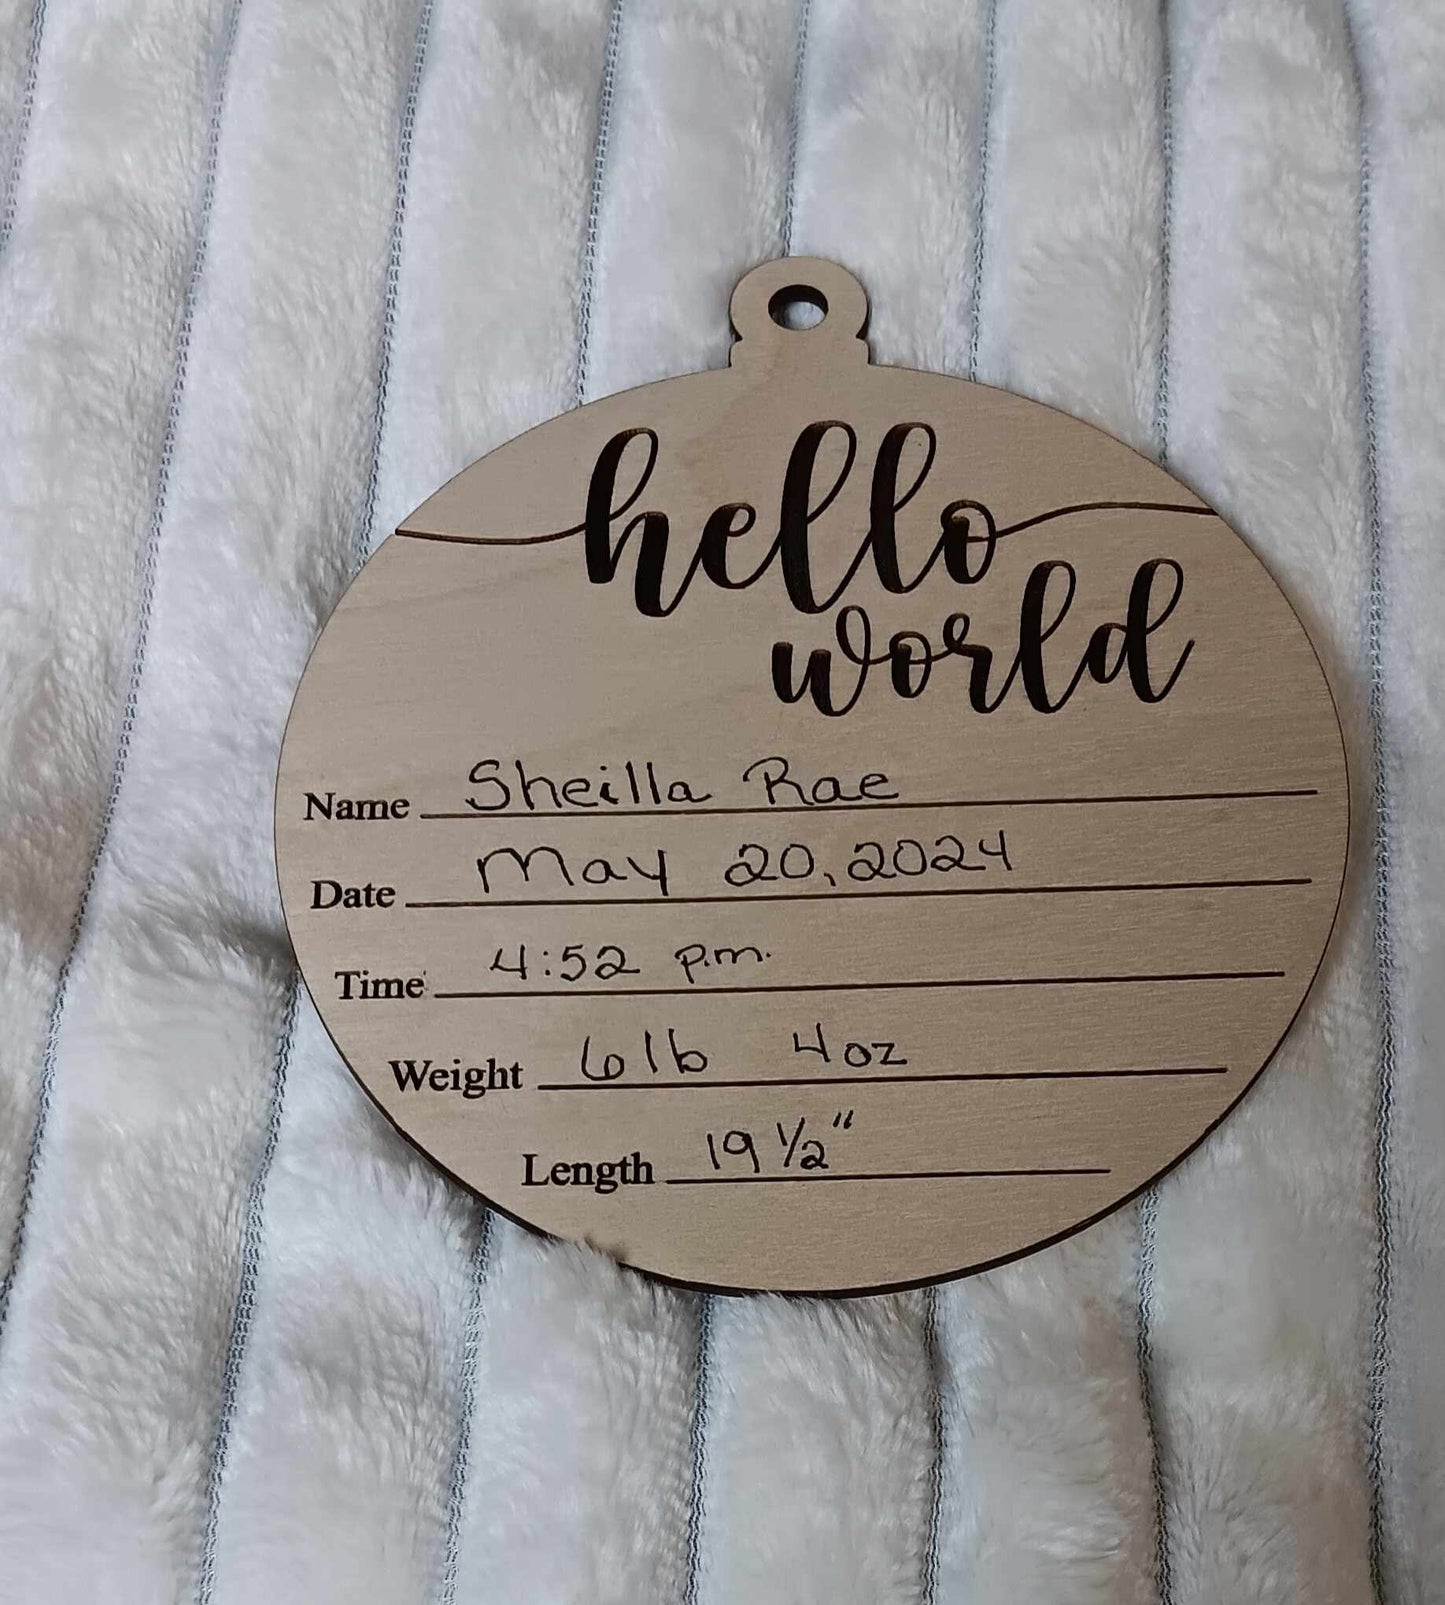 hello
world
Name Sheilla Rae
Date May 20, 2024
Time 4:52 p.m.
Weight 6lb 4oz
Length 19 1/2"